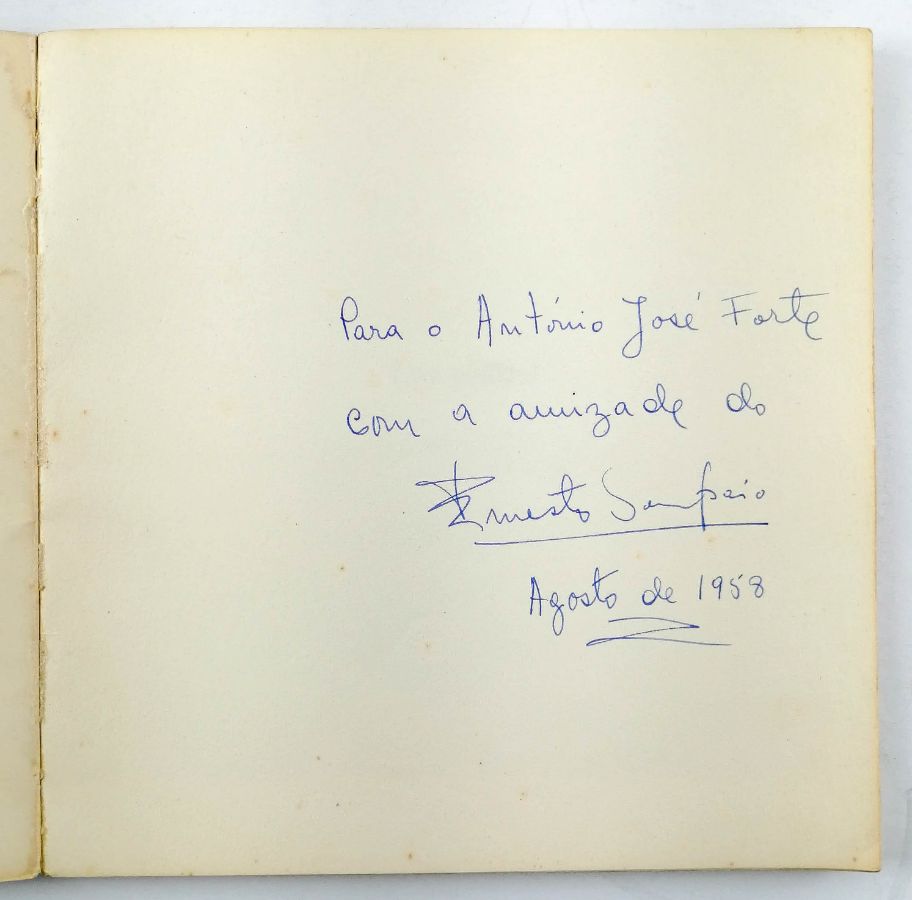 Para o António José Forte
com a amizade do
Ernesto Sampaio
Agosto de 1958